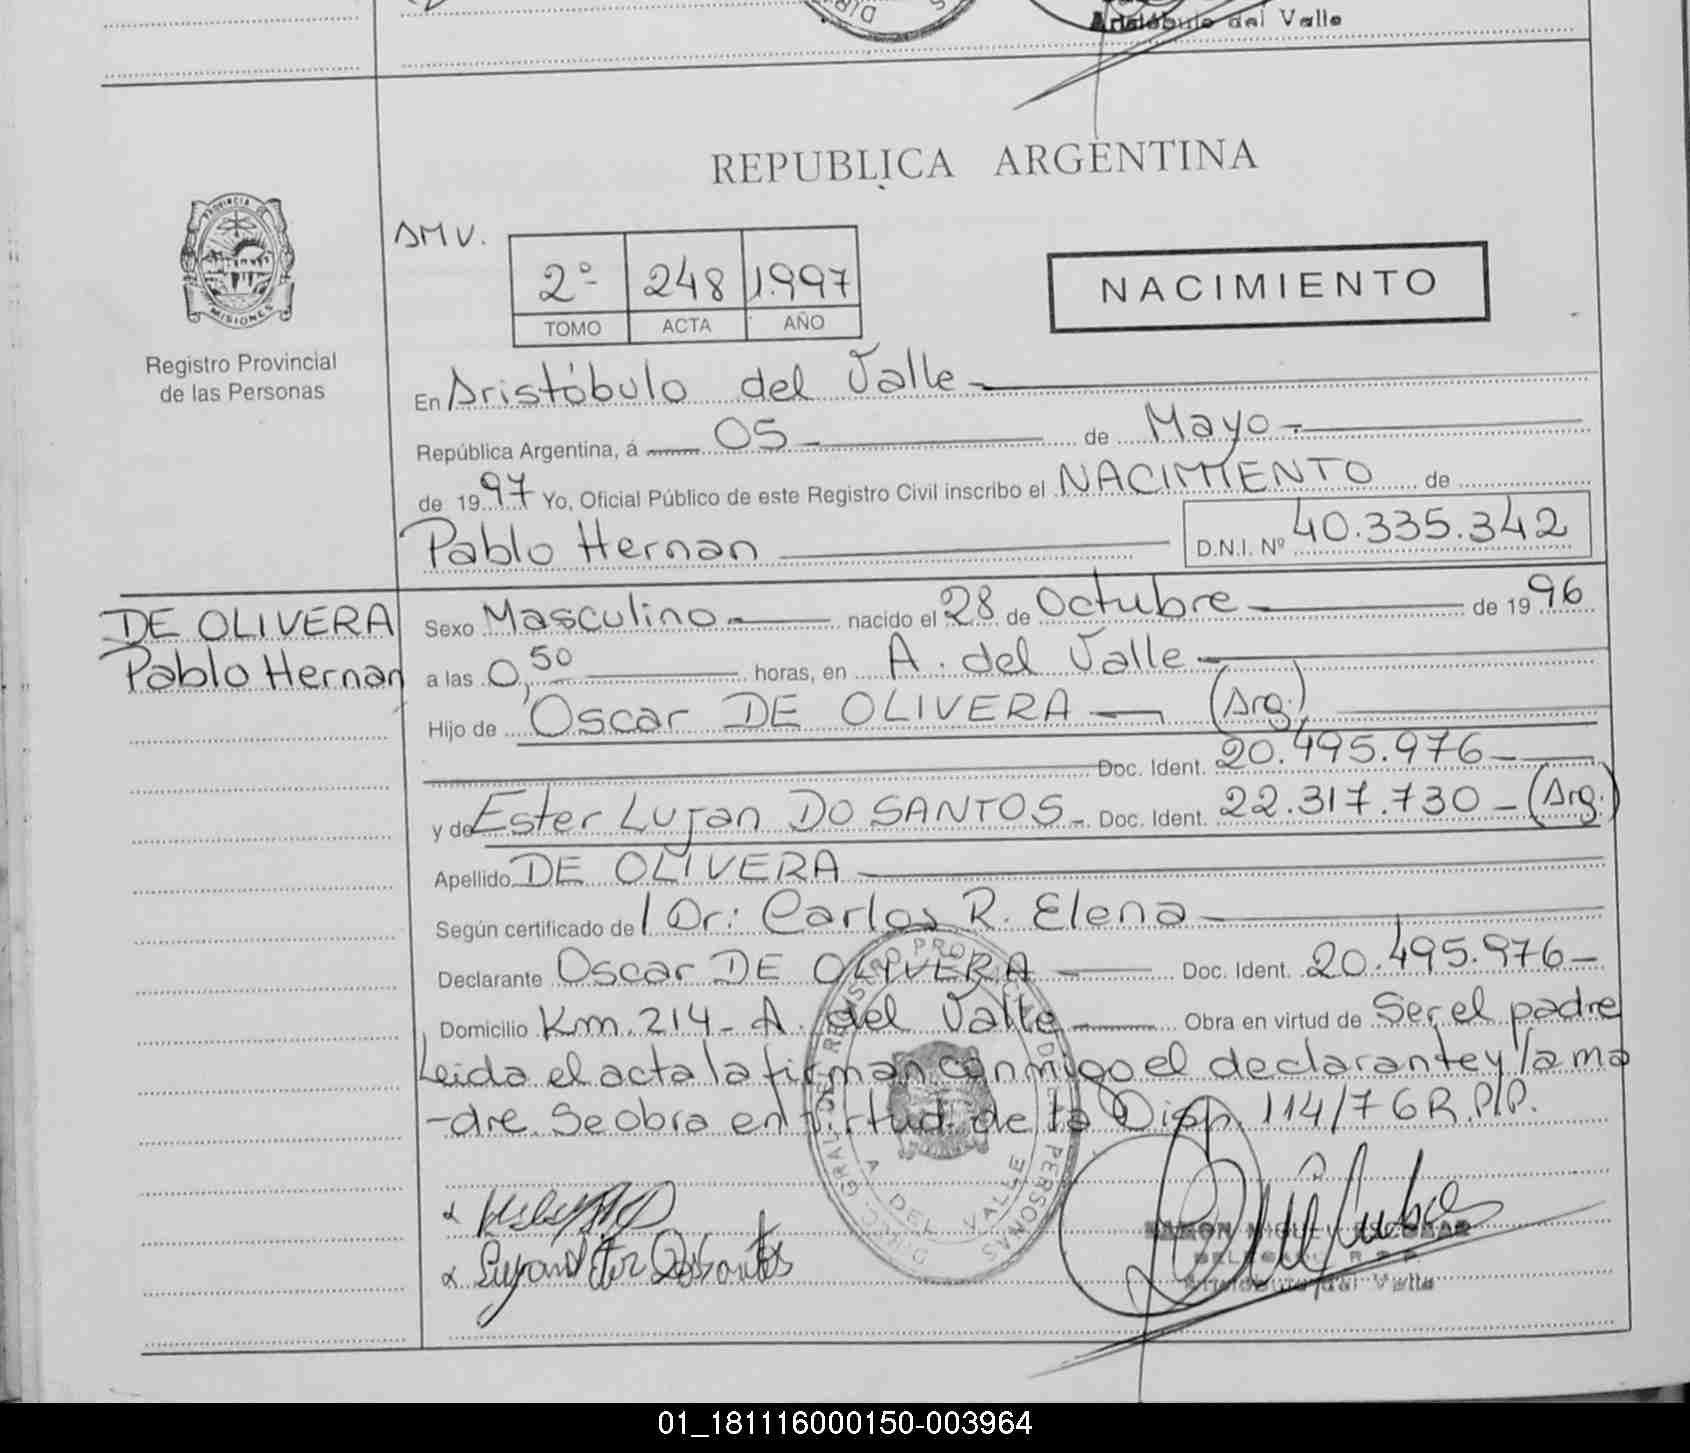 Aristóbulo del Valle
REPUBLICA ARGENTINA
PROVINCIA DE
MISIONES
Registro Provincial
de las Personas
AMV.
2º 248 1.997
TOMO ACTA AÑO
NACIMIENTO
En Aristóbulo del Valle
República Argentina, á 05 de Mayo
de 1997 Yo, Oficial Público de este Registro Civil inscribo el NACIMIENTO de
Pablo Hernan D.N.I. Nº 40.335.342
DE OLIVERA
Pablo Hernan
Sexo Masculino nacido el 28 de Octubre de 1996
a las 0,50 horas, en A. del Valle
Hijo de Oscar DE OLIVERA (Arg.)
Doc. Ident. 20.495.976
y de Ester Lujan DO SANTOS Doc. Ident. 22.317.730 (Arg.)
Apellido DE OLIVERA
Según certificado de / Dr: Carlos R. Elena
Declarante Oscar DE OLIVERA Doc. Ident. 20.495.976
Domicilio Km. 214 - A. del Valle Obra en virtud de Ser el padre
Leida el acta la firman conmigo el declarante y la ma
-dre. Se obra en virtud de la Disp. 114/76 R.P.P.
DIRECC. GRAL. DE REGISTRO PROV. DE PERSONAS
A. DEL VALLE
RAMON MIGUEL ESCOBAR
DELEGADO R.P.P.
Aristóbulo del Valle
01_181116000150-003964